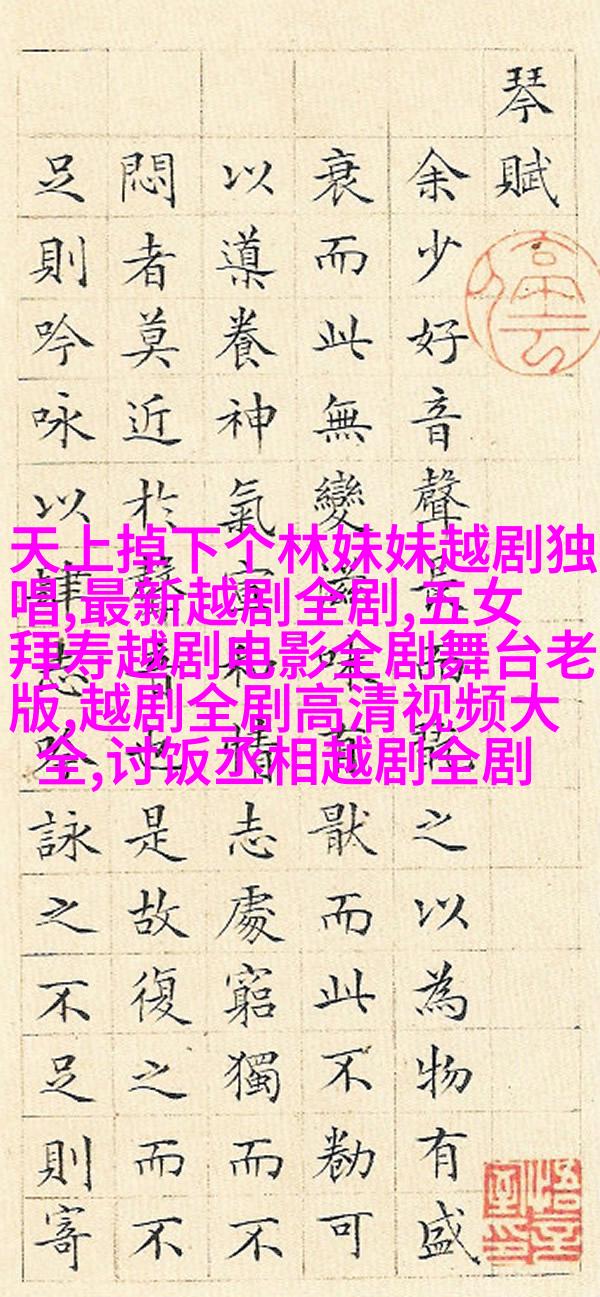 琴賦
余少好音聲之以為物有盛
衰而此無變滋味有猒而此不勌可
以導養神氣宣和情志處窮獨而不
悶者莫近於聲音也是故復之而不
足則吟咏以肆志吟詠之不足則寄
天上掉下个林妹妹越剧独
唱,最新越剧全剧,五女
拜寿越剧电影全剧舞台老
版,越剧全剧高清视频大
全,讨饭丞相越剧全剧